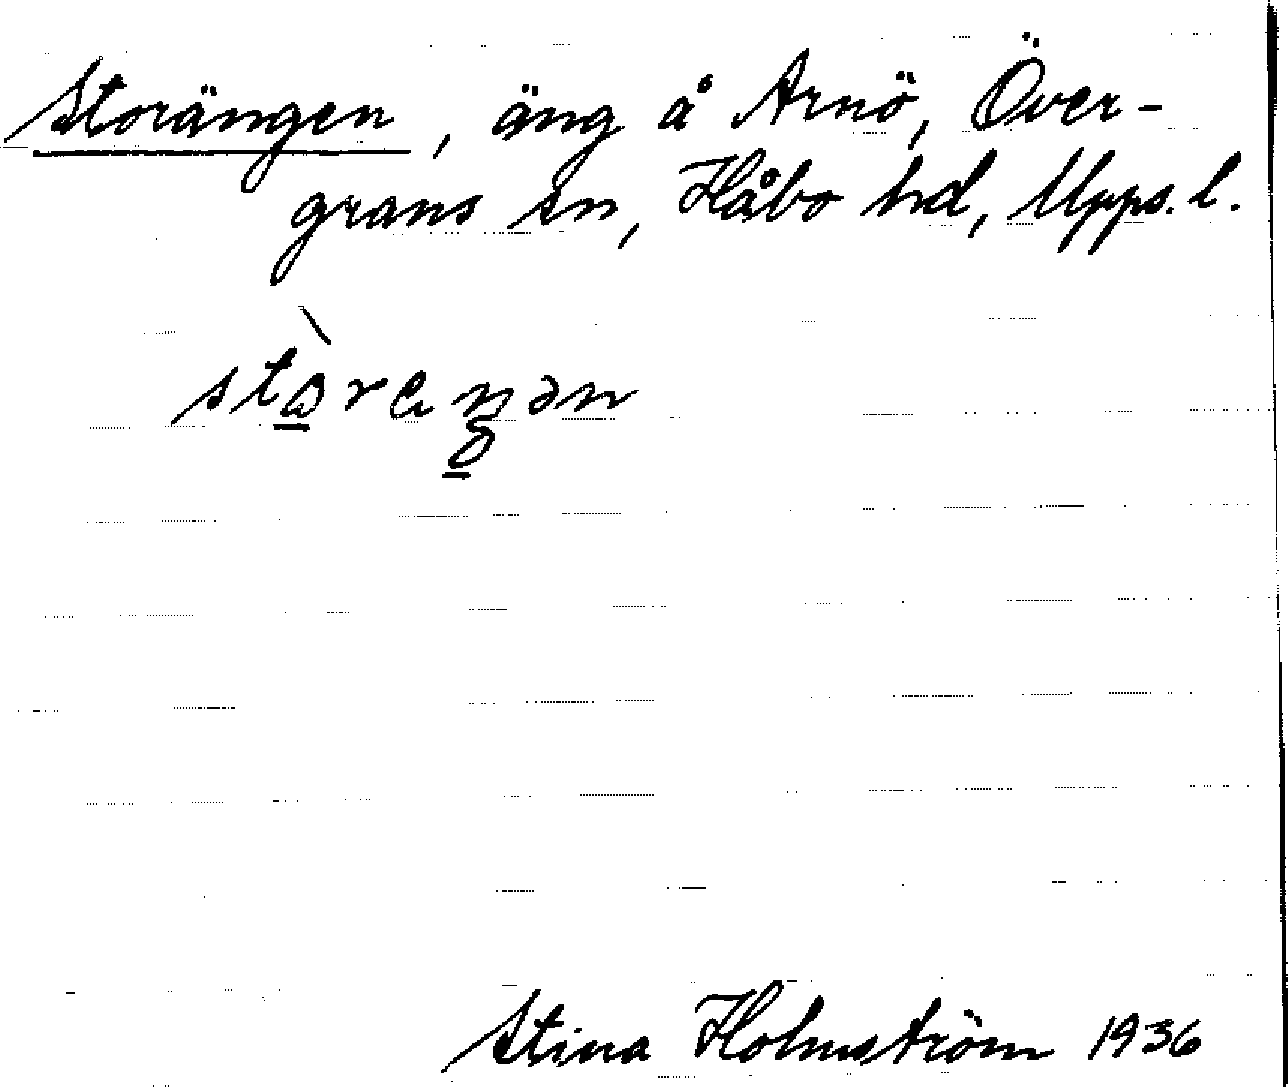 Storängen, äng å Arnö, Över-
grans sn, Håbo hd, Upps. l.
Stina Holmström 1936